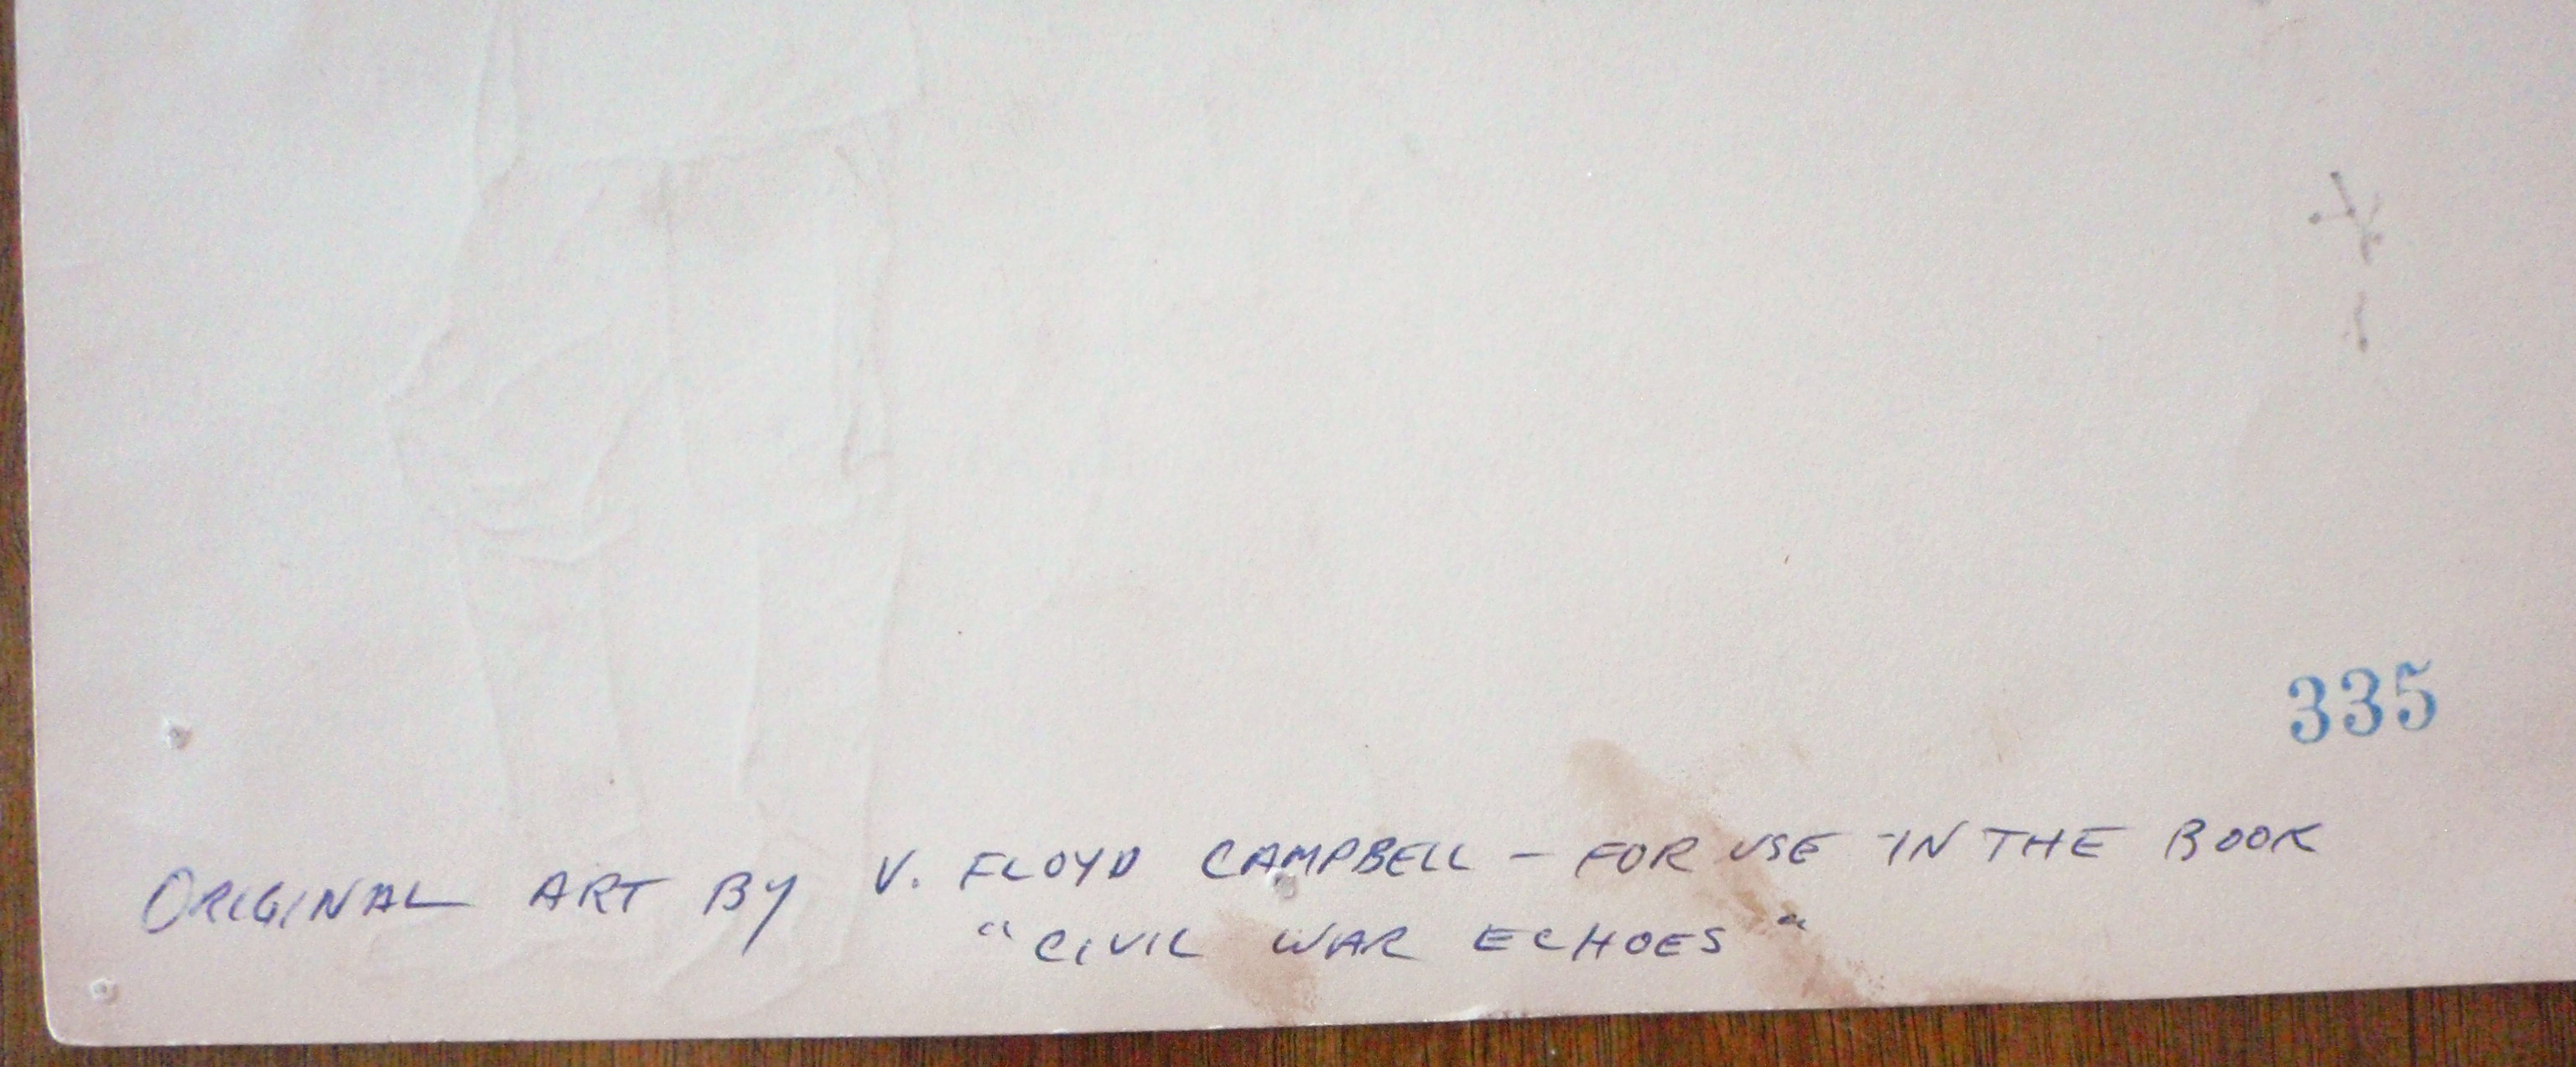 335
ORIGINAL ART BY V. FLOYD CAMPBELL – FOR USE IN THE BOOK
"CIVIL WAR ECHOES"